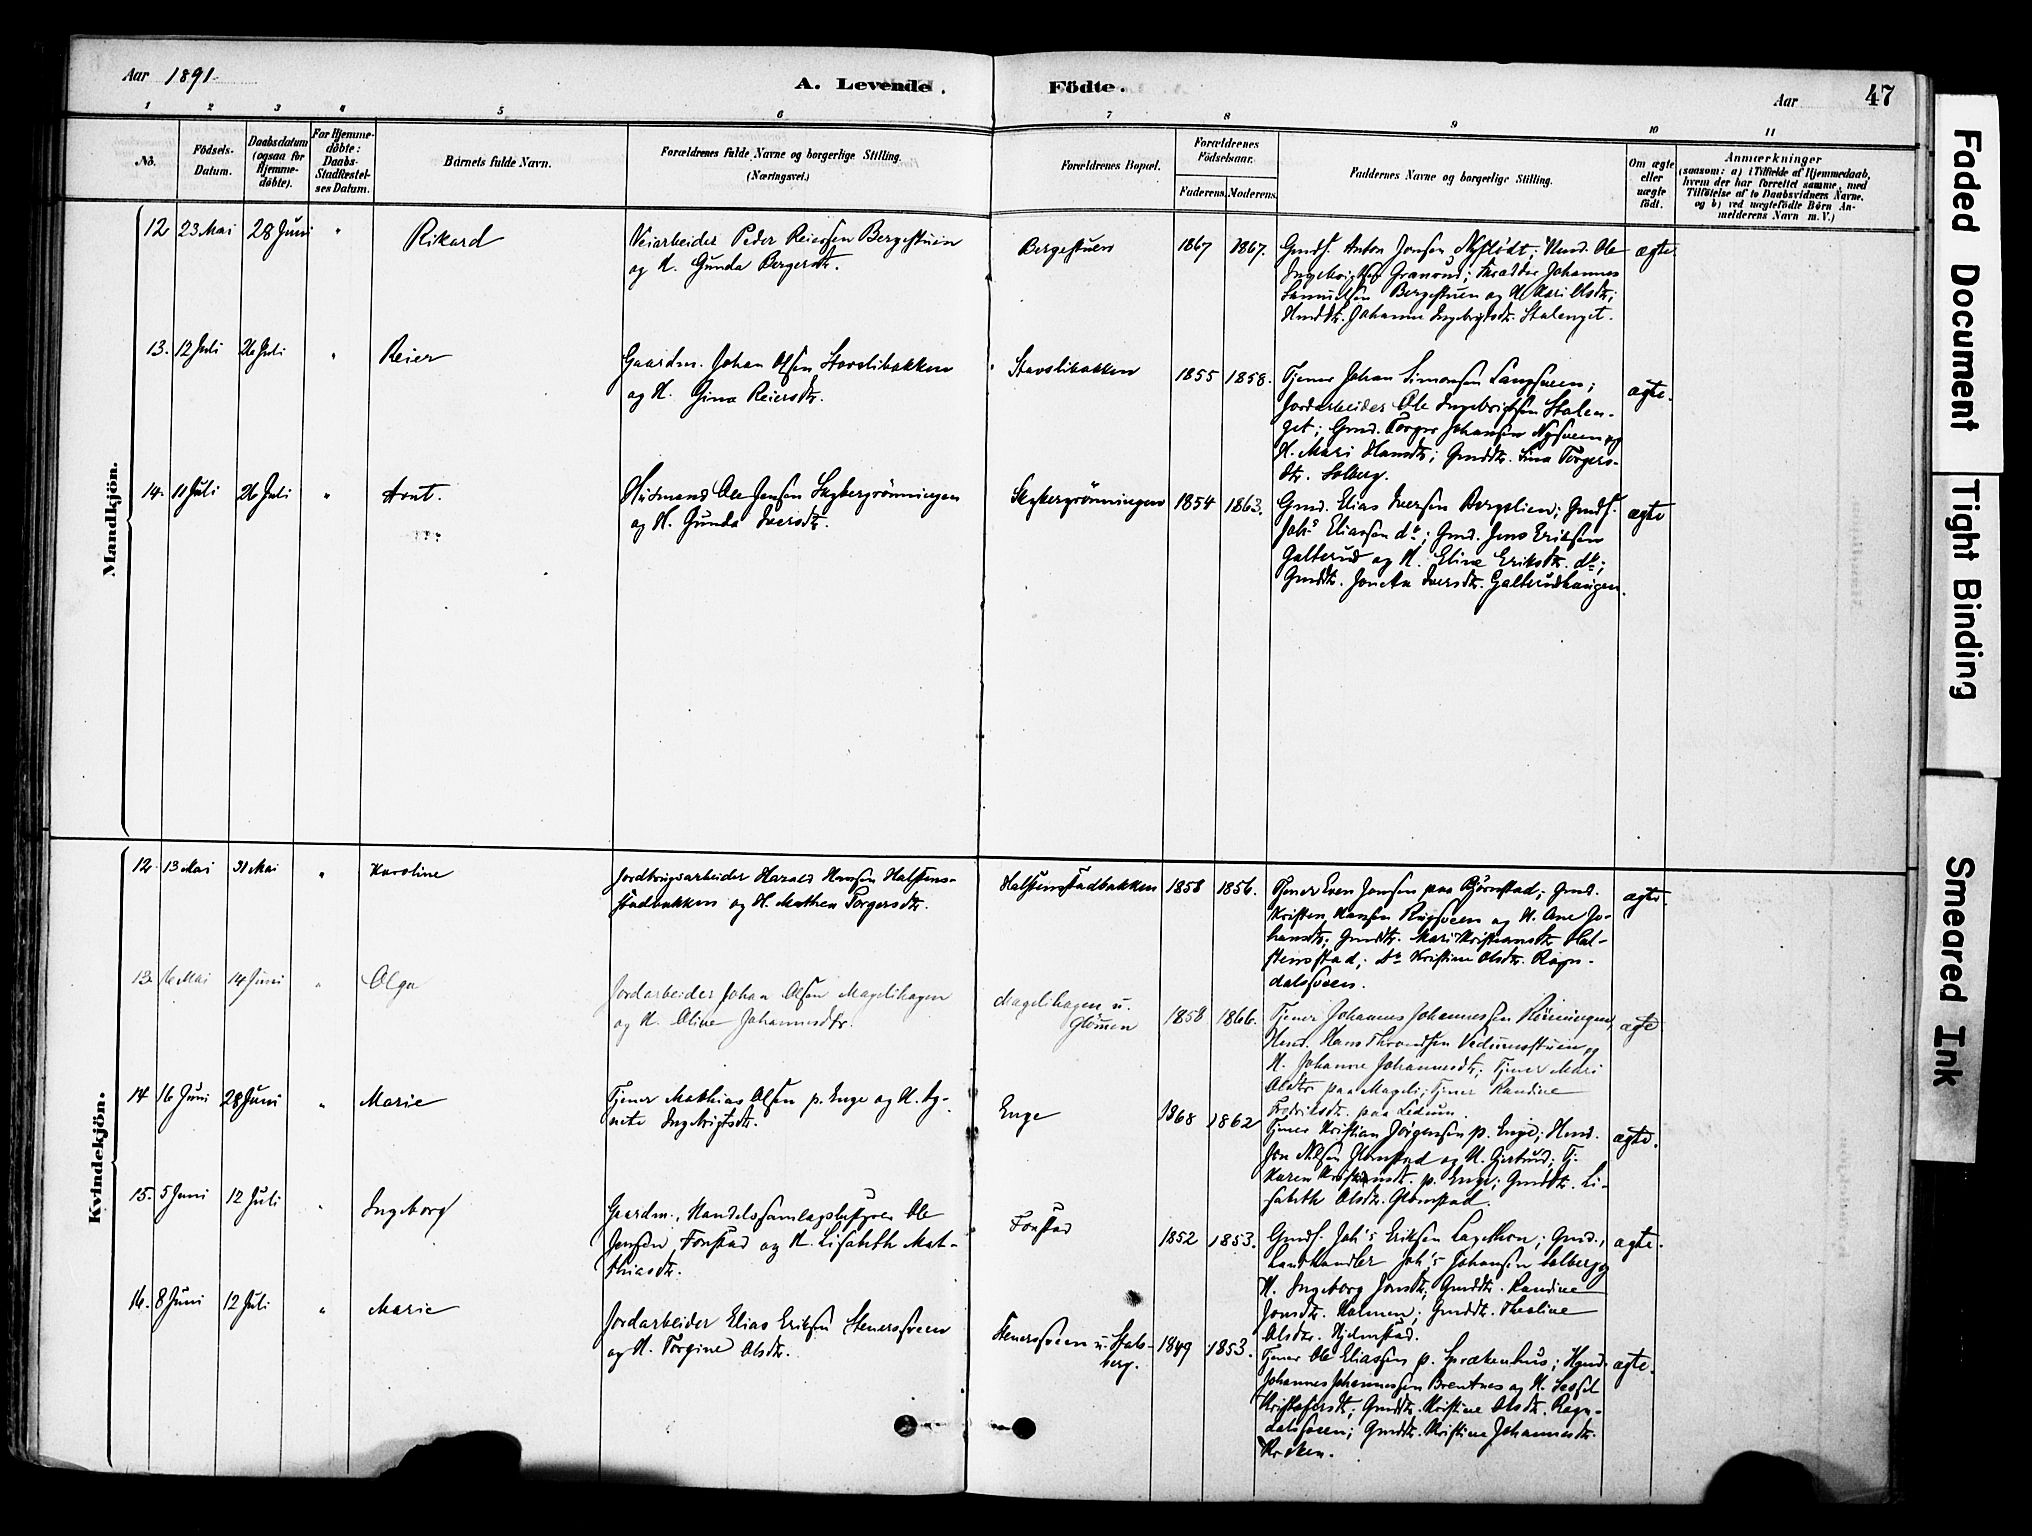 Aar 1891
A. Levende Födte.
Aar
47
1 2 3 4 5 6 7 8 9 10 11
No.
Födsels-Datum.
Daabsdatum (ogsaa for Hjemme-döbte).
For Hjemme-döbte: Daabs-Stadfæstel-ses Datum.
Barnets fulde Navn.
Forældrenes fulde Navne og borgerlige Stilling.
(Næringsvei.)
Forældrenes Bopæl.
Forældrenes Födselsaar.
Faderens. Moderens.
Faddernes Navne og borgerlige Stilling.
Om ægte eller uægte födt.
Anmærkninger
(saasom: a) i Tilfælde af Hjemmedaab, hvem der har forrettet samme, med Tilföielse af to Daabsvidners Navne, og b) ved uægtefödte Börn An-melderens Navn m. V.)
Mandkjön.
12 23 Mai 28 Juni " Rikard
Veiarbeider Peder Reiersen Bergestuen
og H. Gunda Bergersdtr.
Bergestuen 1867 1867.
Gmds. Anton Jonsen Nyflödt; Hmd. Ole
Ingebrigtsen Granrud; Forædder Johannes
Samuelsen Bergestuen og H. Kari Olsdtr;
Hmddtr. Johanne Ingebrigtsdtr. Stalenget.
ægte.
13. 12 Juli 26 Juli " Reier
Gaardm. Johan Olsen Stavslibakken
og H. Gina Reiersdtr.
Stavslibakken 1855 1858.
Tjener Johan Simensen Langsveen;
Jordarbeider Ole Ingebrigtsen Stalen-
get; Gmd. Torger Johansen Nysveen og
H. Mari Hansdtr; Gmddtr. Lina Torgers-
dtr. Solberg.
ægte.
14. 11 Juli 26 Juli " Arnt.
Husmand Ole Jensen Skybergrönningen
og H. Gunda Iversdtr.
Skybergrönningen 1854 1863.
Gmd. Elias Iversen Bergslien; Gmds.
Johs Eliassen do; Gmd. Jens Eriksen
Galterud og H. Eline Eriksdtr. do;
Gmddtr. Joneta Iversdtr. Galterudhaugen.
ægte
Kvindekjön.
12. 13 Mai 31 Mai " Karoline
Jordbrugsarbeider Harald Hansen Halstens-
stadbakken og H. Mathea Torgersdtr.
Halstenstadbakken 1858 1856.
Tjener Even Jensen paa Björnstad; Gmd.
Kristen Hansen Rugsveen og H. Ane Jo-
hansdtr; Gmddtr. Mari Kristiansdtr Hal-
stensstad; do Kristine Olsdtr. Ragn-
dalssveen.
ægte.
13. 16 Mai 14 Juni " Olga
Jordarbeider Johan Olsen Magelihagen
og H. Oline Johannesdtr.
Magelihagen u.
Glömen
1858 1866.
Tjener Johannes Johannessen Rönningen,
Hmd. Hans Throndsen Vedumsstuen og
H. Johanne Johannesdtr; Tjener Mari
Olsdtr paa Mageli; Tjener Randine
Fredriksdtr. paa Lidum.
ægte
14 16 Juni 28 Juni " Marie
Tjener Mathias Olsen p. Enge og H. Ag-
nete Ingebrigtsdtr.
Enge 1868 1862
Tjener Kristian Jörgensen p. Enge; Hmd.
Jon Nilsen Glomstad og H. Gjertrud; Tj.
Karen Kristiansdtr. p. Enge; Gmddtr. Li-
sabeth Olsdtr. Glomstad.
ægte.
15. 5 Juni 12 Juli " Ingeborg
Gaardm., Handelssamlagsbestyrer Ole
Jensen Fonstad og H. Lisabeth Mat-
thiasdtr.
Fonstad 1852 1853.
Gmds. Joh's Eriksen Lagethon; Gmd.,
Landhandler Joh's Johansen Solberg og
H. Ingeborg Jonsdtr; Gmddtr. Randine
Jonsdtr. Holmen; Gmddtr. Thealine
Olsdtr. Hjelmstad.
ægte.
16. 8 Juni 12 Juli " Marie
Jordarbeider Elias Eriksen Stenerssveen
og H. Torgine Olsdtr.
Stenerssveen u. Stals-
berg.
1849 1853.
Tjener Ole Eliassen p. Sprækenhus; Hmd.
Johannes Johannessen Brentnes og H. Sessel
Kristofersdtr; Gmddtr. Kristine Olsdtr. Ragn-
dalssveen; Gmddtr. Kristine Johannesdtr.
Kroken.
ægte.
Faded Document
Tight Binding
Smeared Ink